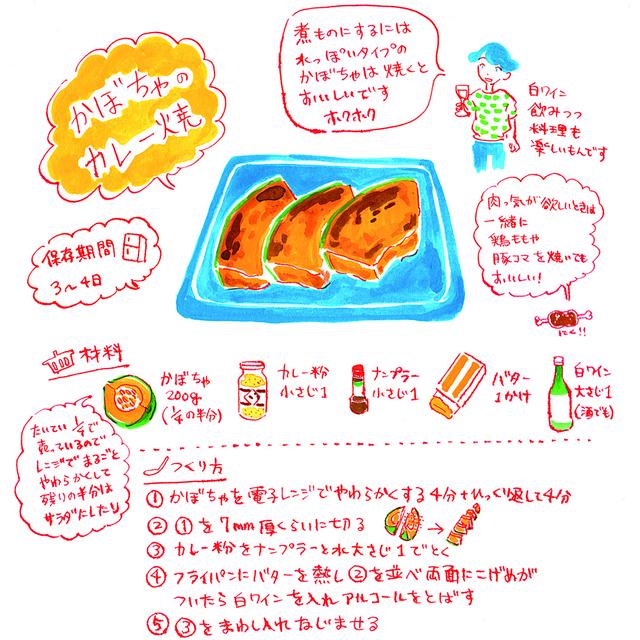 かぼちゃの
カレー焼
煮ものにするには
水っぽいタイプの
かぼちゃは焼くと
おいしいです
ホクホク
白ワイン
飲みつつ
料理も
楽しいもんです
保存期間
3〜4日
肉っ気が欲しいときは
一緒に
鶏ももや
豚コマを焼いても
おいしい!
にく!!
材料
かぼちゃ
200g
(1/4の半分)
カレー粉
小さじ1
ナンプラー
小さじ1
バター
1かけ
白ワイン
大さじ1
(酒でも)
たいてい1/4で
売っているので
レンジでまるごと
やわらかくして
残りの半分は
サラダにしたり
つくり方
① かぼちゃを電子レンジでやわらかくする4分+ひっくり返して4分
② ①を7mm厚くらいに切る
③ カレー粉をナンプラーと水大さじ1でとく
④ フライパンにバターを熱し②を並べ両面にこげめが
ついたら白ワインを入れアルコールをとばす
⑤ ③をまわし入れなじませる